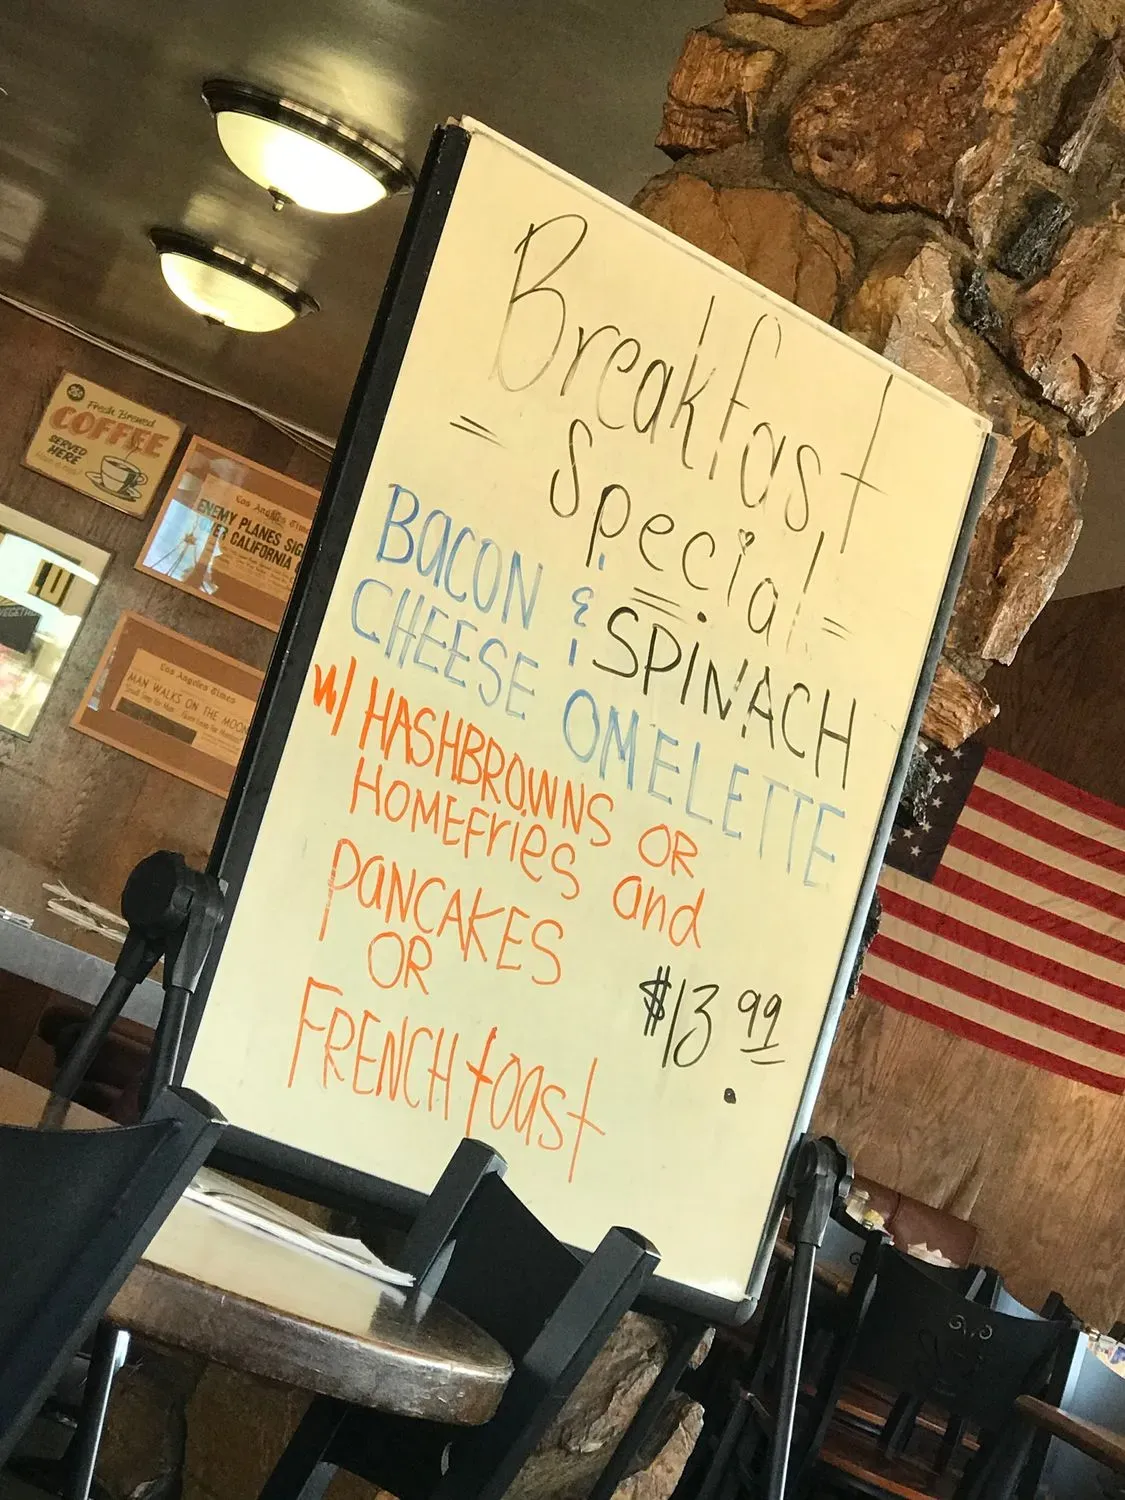 Breakfast
= Special =
BACON & SPINACH
CHEESE OMELETTE
W/ HASHBROWNS OR
HOMEFries and
PANCAKES
OR
FRENCH toast
$13.99
Fresh Brewed
COFFEE
SERVED
HERE
Los Angeles Times
ENEMY PLANES SIG
OVER CALIFORNIA
Los Angeles Times
MAN WALKS ON THE MOON